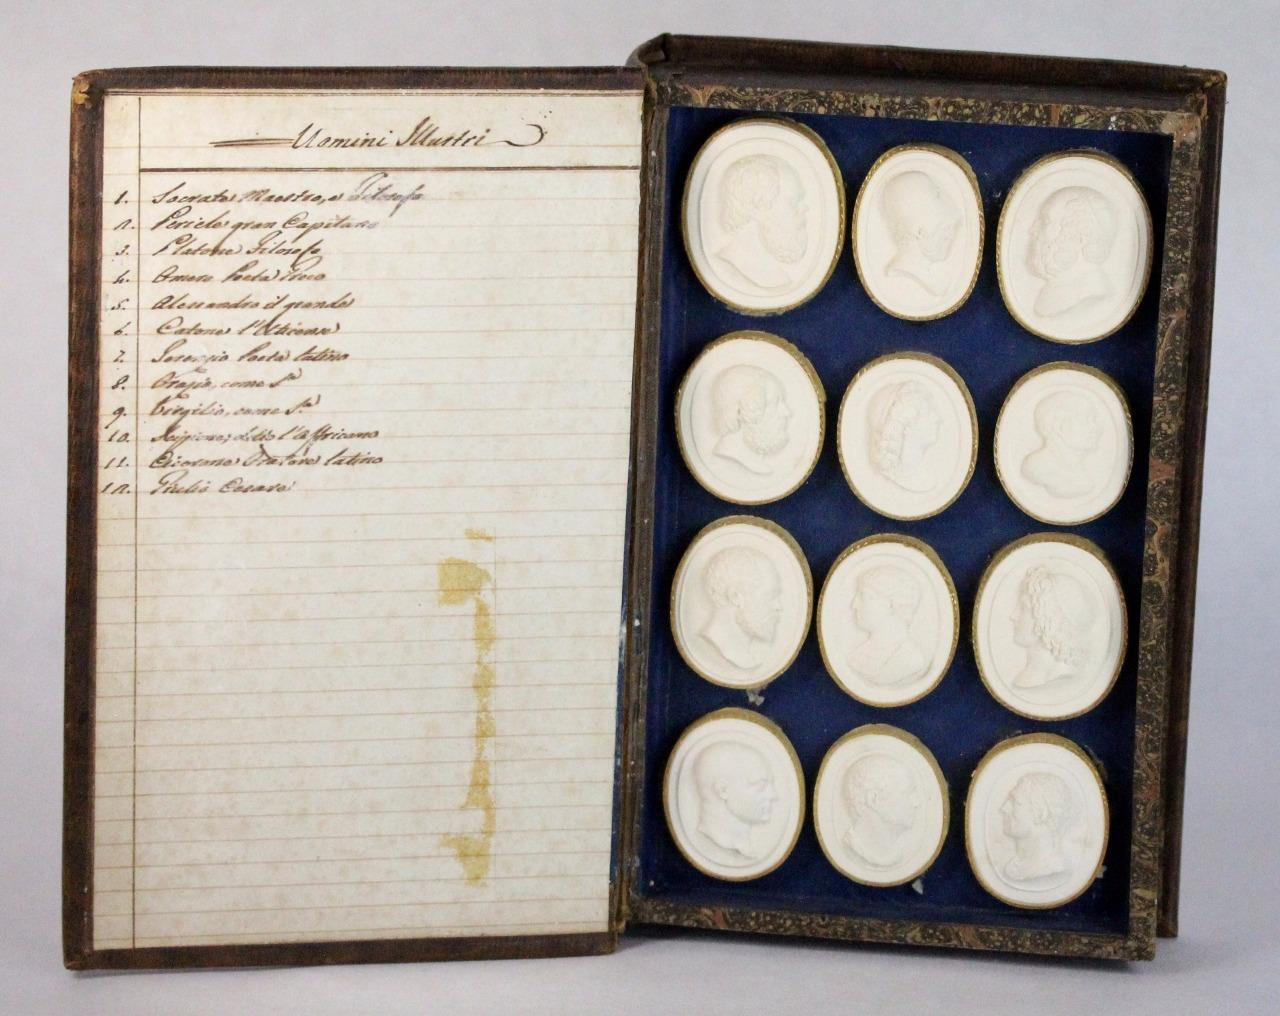 Uomini Illustri
1. Socrate Maestro, e Filosofo
2. Pericle gran Capitano
3. Platone Filosofo
4. Omero Poeta Greco
5. Alessandro il grande
6. Catone l'Uticense
7. Terenzio Poeta latino
8. Orazio, come Sa
9. Virgilio, come Sa
10. Scipione, detto l'Affricano
11. Cicerone Oratore latino
12. Giulio Cesare